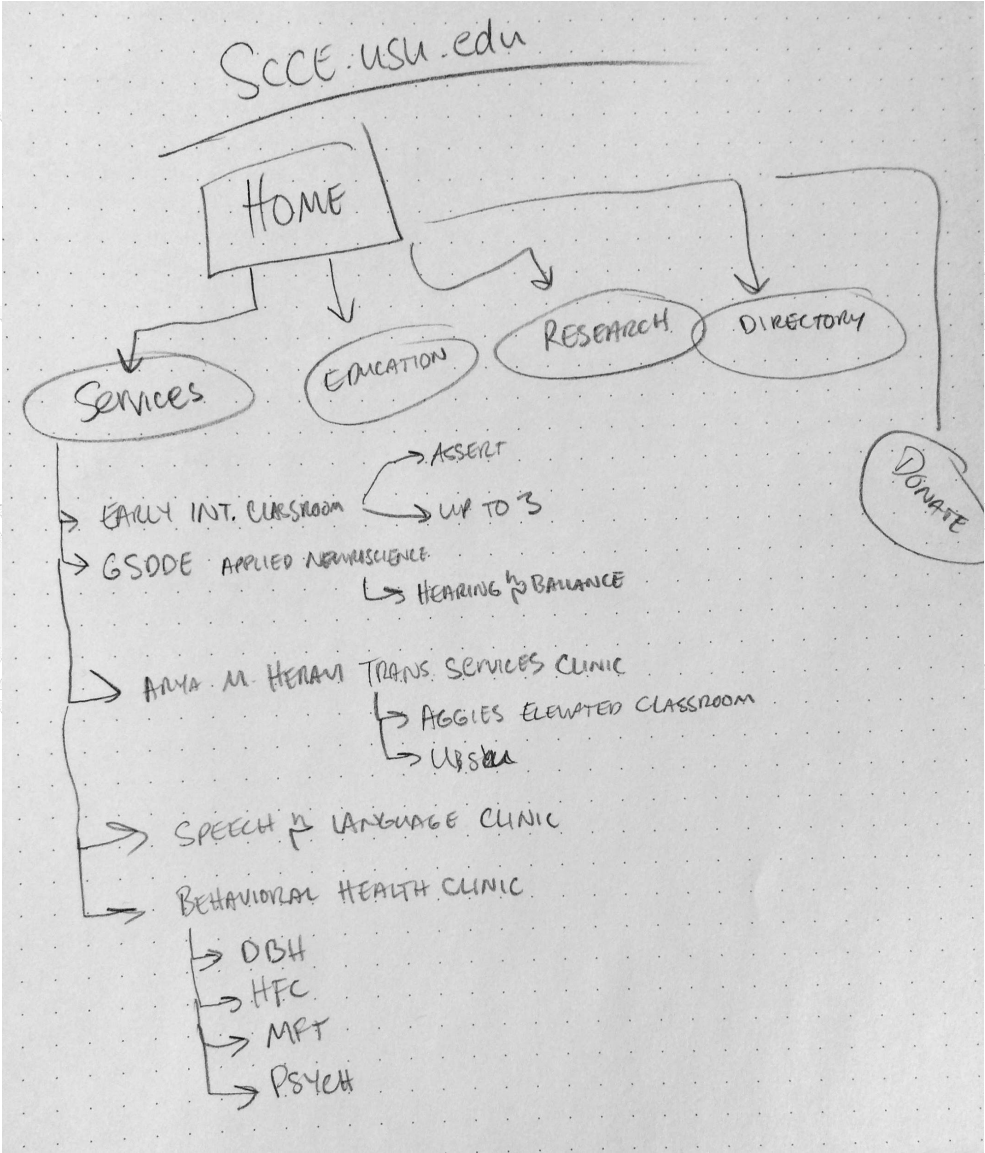 SCCE.usu.edu
HOME
Services
EDUCATION
RESEARCH
DIRECTORY
DONATE
EARLY INT. CLASSROOM
ASSERT
UP TO 3
GSDDE APPLIED NEUROSCIENCE
HEARING & BALLANCE
ARYA. M. HERAVI TRANS. SERVICES CLINIC
AGGIES ELEVATED CLASSROOM
SPEECH & LANGUAGE CLINIC
BEHAVIORAL HEALTH CLINIC
DBH
HFC
MFT
PSYCH